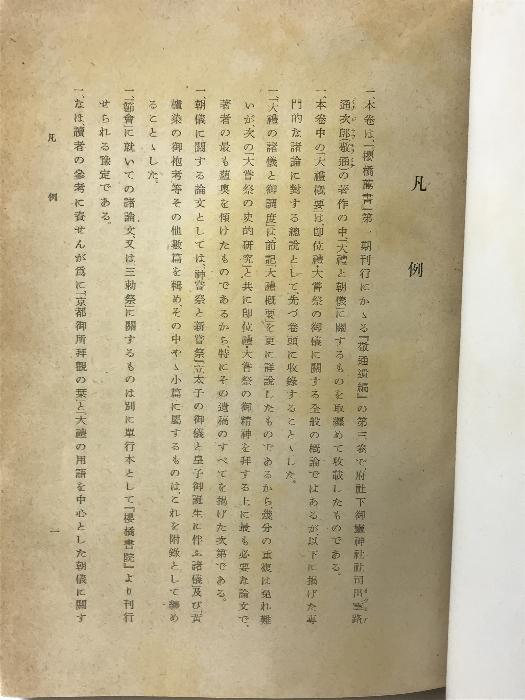 凡例
一、本卷は、『櫻橘叢書』第一期刊行にかゝる『敬通遺編』の第三卷で、府社下御靈神社社司出雲路
通次郎(敬通)の著作の中、「大禮と朝儀」に關するものを取纏めて收載したものである。
一、本卷中の「大禮槪要」は、卽位禮・大嘗祭の御儀に關する全般の槪論ではあるが、以下に揭げた專
門的な諸論に對する總說として、先づ卷頭に收錄することゝした。
一、「大禮の諸儀と御調度」は、前記「大禮槪要」を更に詳說したものであるから、幾分の重複は免れ難
いが、次の「大嘗祭の史的硏究」と共に卽位禮・大嘗祭の御精神を拜する上に最も必要な論文で、
著者の最も蘊奧を傾けたものであるから、特にその遺稿のすべてを揭げた次第である。
一、朝儀に關する論文としては、「神嘗祭と新嘗祭」「立太子の御儀と皇子御誕生に伴ふ諸儀」及び「黃
櫨染の御袍考」等その他數篇を輯めその中やゝ小篇に屬するものは、これを附錄として纏め
ることゝした。
一、節會に就いての諸論文、又は三勅祭に關するものは別に單行本として『櫻橘書院』より刊行
せられる豫定である。
一、なほ、讀者の參考に資せんが爲に、「京都御所拜觀の栞」と「大禮の用語を中心とした朝儀に關す
凡例
一